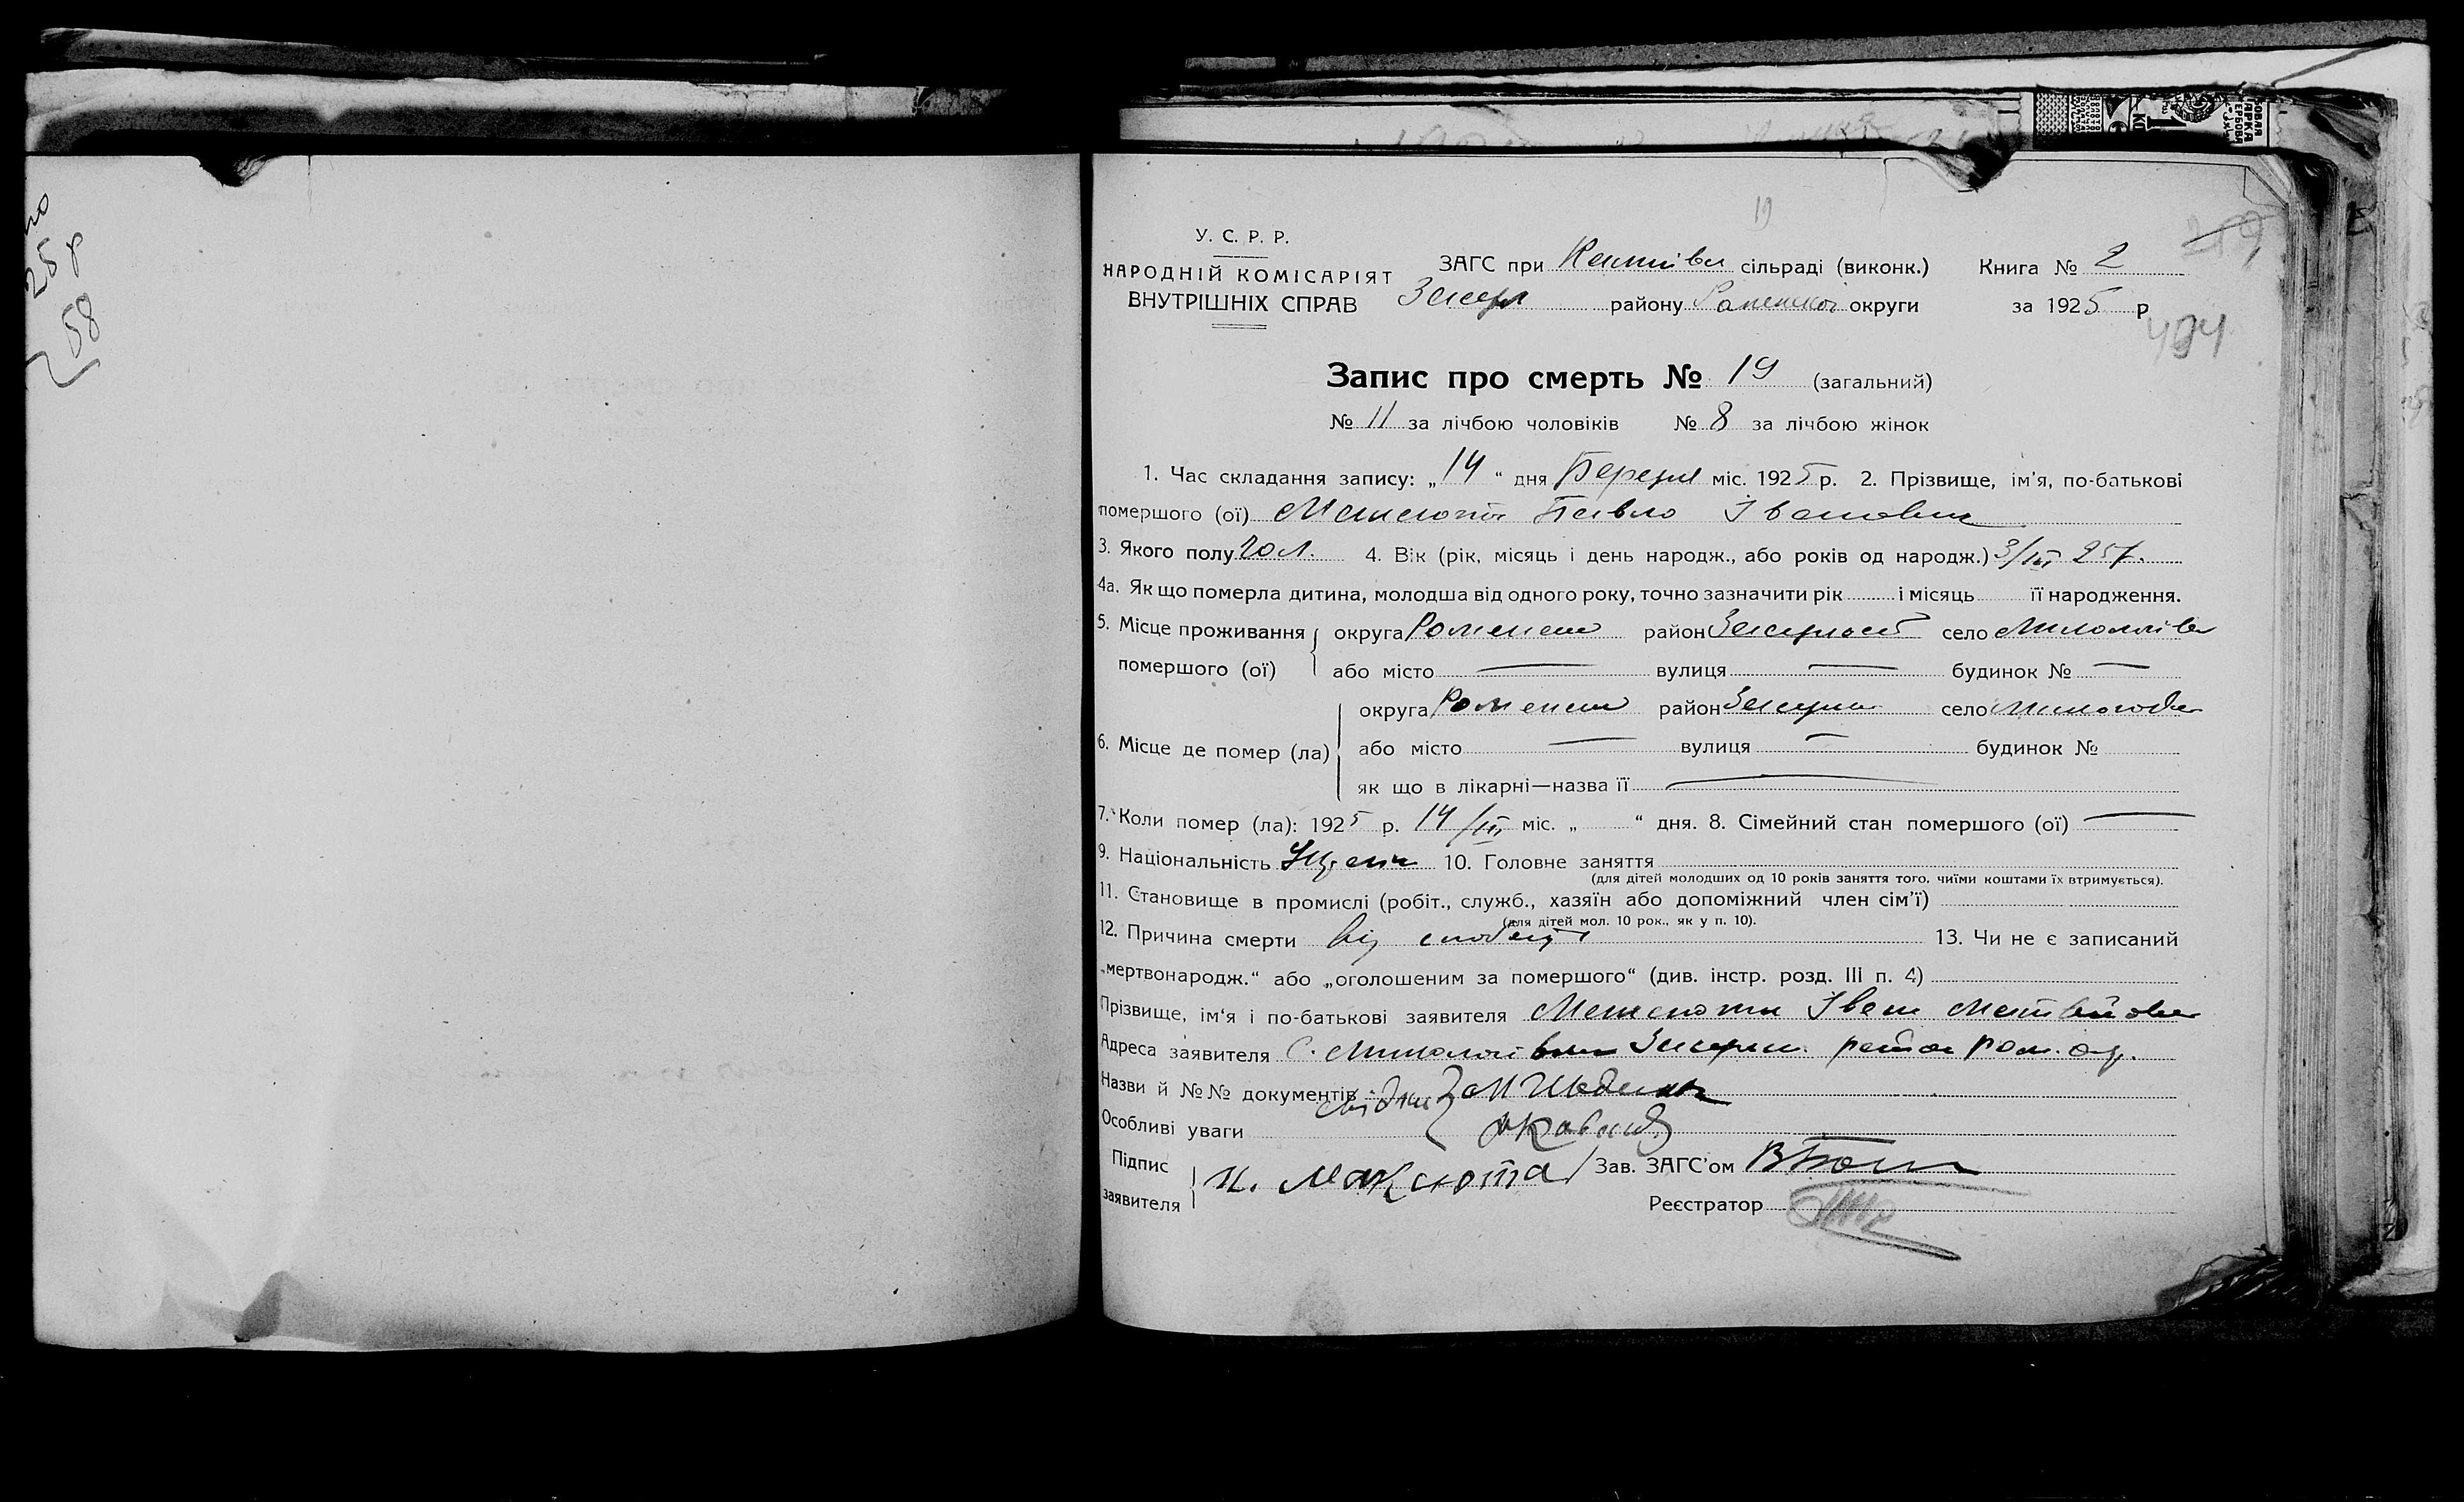 25 р
58
19
У. С. Р. Р.
НАРОДНІЙ КОМІСАРІЯТ
ВНУТРІШНІХ СПРАВ
ЗАГС при сільраді (виконк.) Книга № 2
району Роменської округи за 1925 р
494
Запис про смерть № 19 (загальний)
№ 11 за лічбою чоловіків № 8 за лічбою жінок
1. Час складання запису: „14“ дня Березня міс. 1925 р. 2. Прізвище, ім'я, по-батькові
помершого (ої) Максюта Павло Іванович
3. Якого полу Чол. 4. Вік (рік, місяць і день народж., або років од народж.) 3/III 25
4а. Як що померла дитина, молодша від одного року, точно зазначити рік і місяць її народження.
5. Місце проживання помершого (ої) округа Роменськ район село Миколаївка
або місто — вулиця — будинок № —
6. Місце де помер (ла) округа Роменськ район село
або місто — вулиця — будинок №
як що в лікарні—назва її —
7. Коли помер (ла): 1925 р. 14/III міс. „ “ дня. 8. Сімейний стан помершого (ої) —
9. Національність 10. Головне заняття
(для дітей молодших од 10 років заняття того, чиїми коштами їх втримується).
11. Становище в промислі (робіт., служб., хазяїн або допоміжний член сім'ї)
(для дітей мол. 10 рок., як у п. 10).
12. Причина смерти від 13. Чи не є записаний
„мертвонародж.“ або „оголошеним за помершого“ (див. інстр. розд. III п. 4)
Прізвище, ім'я і по-батькові заявителя Максюта Іван Матвійович
Адреса заявителя С. Миколаївка район Ром. окр.
Назви й №№ документів
свідки
Особливі уваги
Підпис заявителя И. Максюта Зав. ЗАГС'ом
Реєстратор